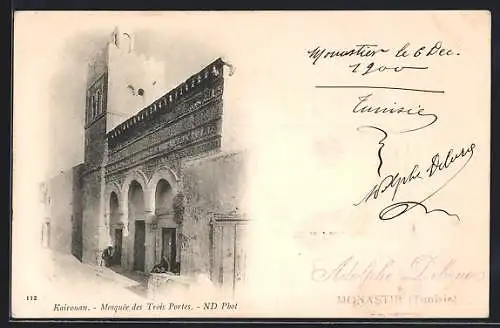 Monastier le 6 Dec.
1900
Tunisie
Adolphe
Adolphe
MONASTIR (Tunisie)
112
Kairouan. - Mosquée des Trois Portes. - ND Phot